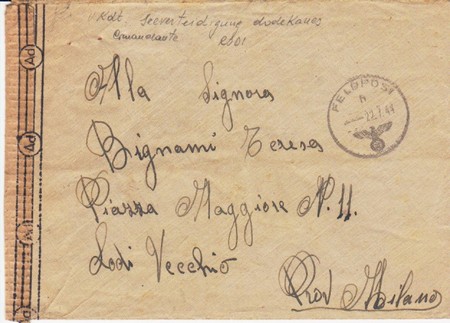 Kdt. Seeverteidigung Dodekanes
Comandante Rodi
FELDPOST
h
22.7.44
Alla Signora
Bignami Teresa
Piazza Maggiore N. 11.
Lodi Vecchio
Prov Milano
Ad
Ad
Ad
Ad